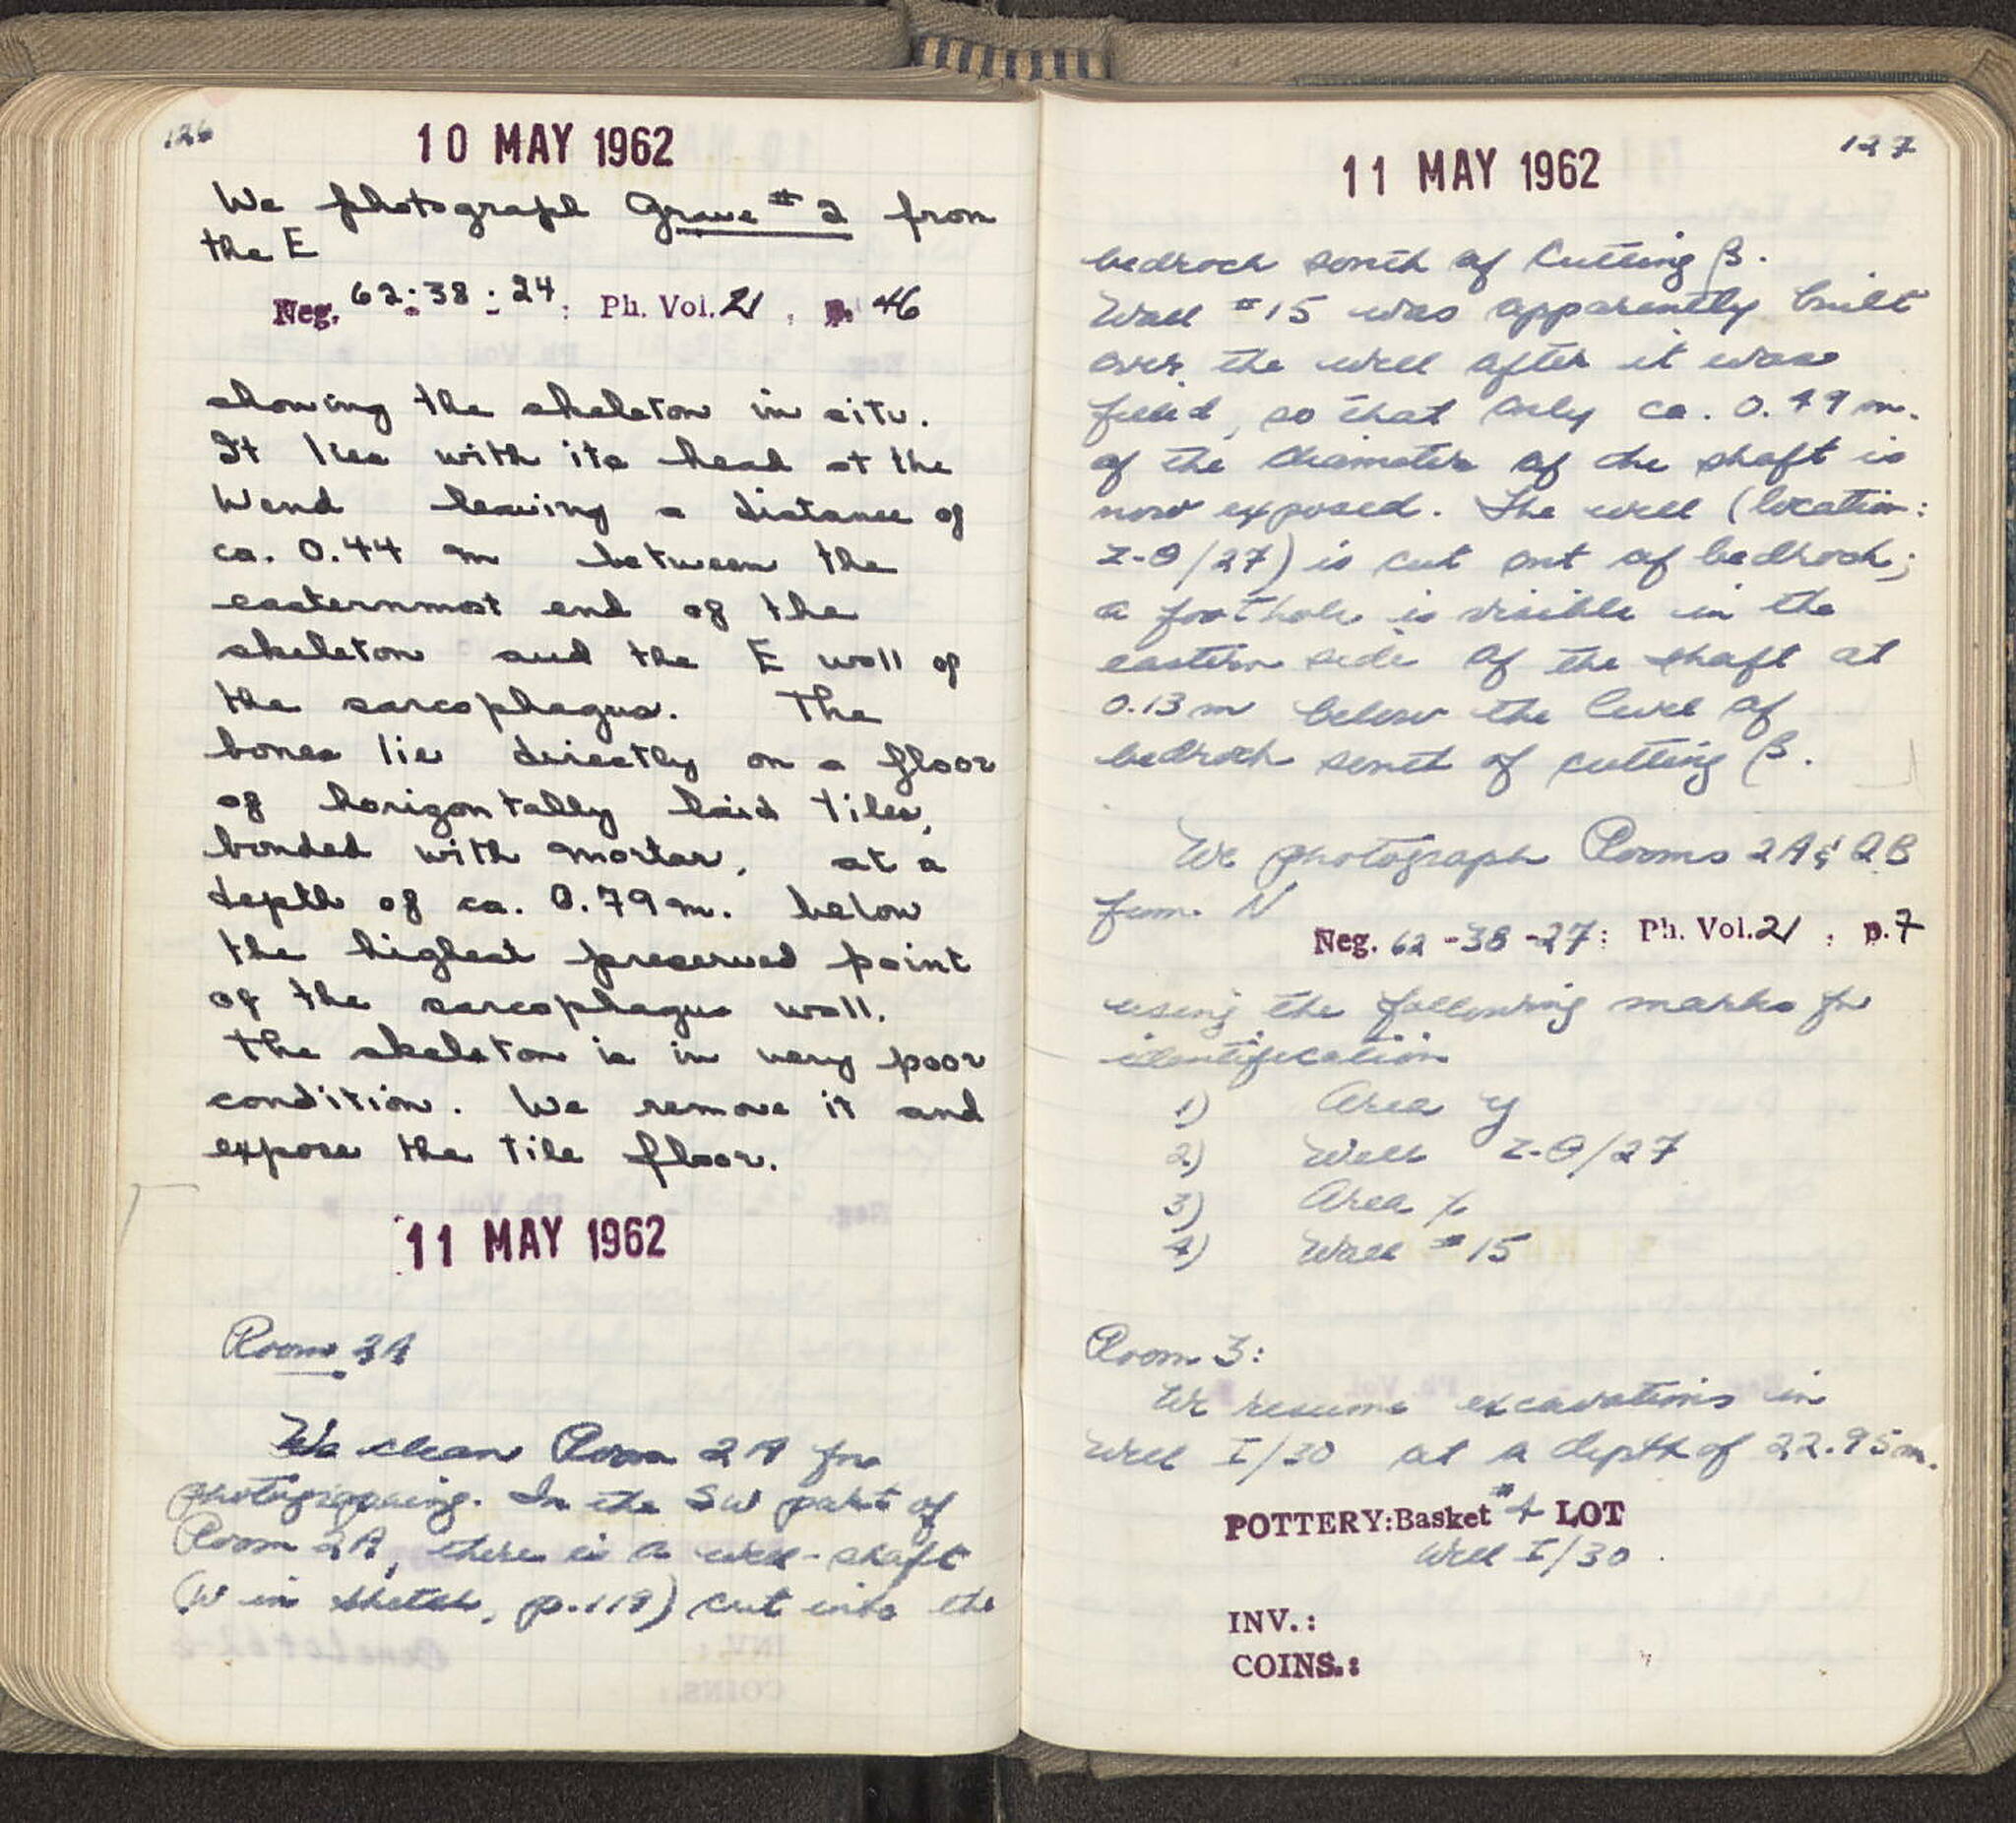 126
10 MAY 1962
We photograph Grave #2 from
the E
Neg. 62-38-24: Ph. Vol. 21, p. 46
showing the skeleton in situ.
It lies with its head at the
W end leaving a distance of
ca. 0.44 m between the
easternmost end of the
skeleton and the E wall of
the sarcophagus. The
bones lie directly on a floor
of horizontally laid tiles,
bonded with mortar, at a
depth of ca. 0.79 m. below
the highest preserved point
of the sarcophagus wall.
The skeleton is in very poor
condition. We remove it and
expose the tile floor.
11 MAY 1962
Room 2A
We clean Room 2A for
In the SW part of
Room 2A, there is a well-shaft
(W in sketch, p. 119) cut into the
127
11 MAY 1962
bedrock south of Cutting β.
Wall #15 was apparently built
over the well after it was
filled, so that only ca. 0.49 m.
of the diameter of the shaft is
now exposed. The well (location:
Z-Θ/27) is cut out of bedrock;
a foothole is visible in the
eastern side of the shaft at
0.13 m below the level of
bedrock south of cutting β.
We photograph Rooms 2A & 2B
from N
Neg. 62-38-27: Ph. Vol. 21, p. 7
using the following marks for
identification
1) Area y
2) Well Z-Θ/27
3) Area
4) Wall #15
Room 3:
We resume excavations in
Well I/30 at a depth of 22.95 m.
POTTERY: Basket #4 LOT
Well I/30
INV.:
COINS.: